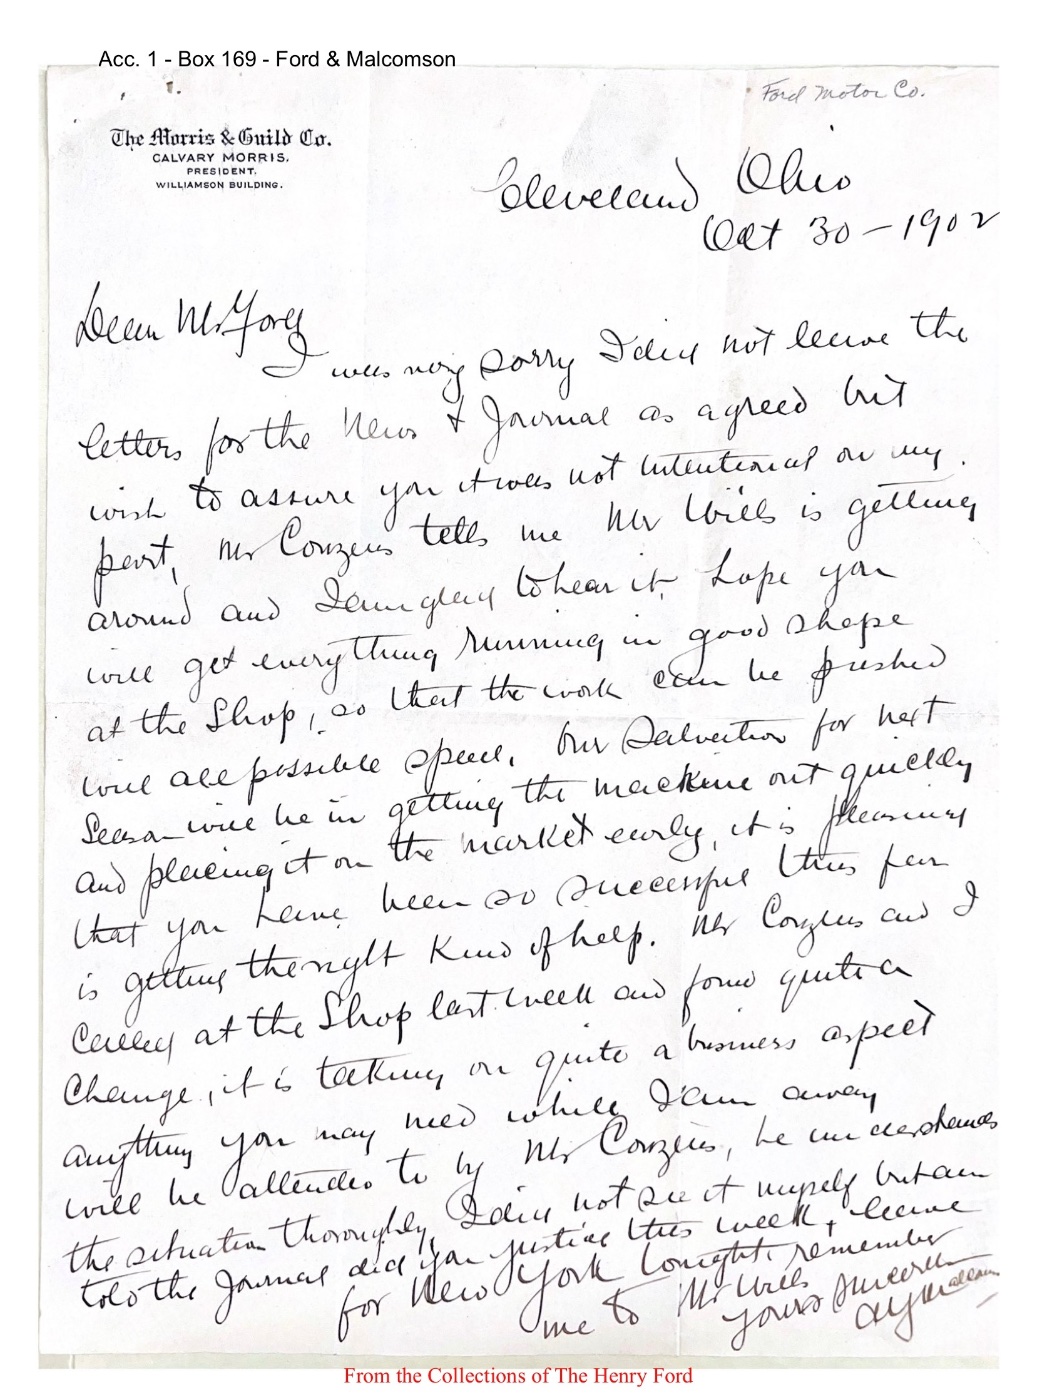 Acc. 1 - Box 169 - Ford & Malcomson
Ford Motor Co.
The Morris & Guild Co.
CALVARY MORRIS,
PRESIDENT,
WILLIAMSON BUILDING.
Cleveland Ohio
Oct 30 - 1902
Dear Mr. Ford
I was very sorry I did not leave the
letters for the News & Journal as agreed but
wish to assure you it was not intentional on my
part, Mr Couzens tells me Mr Wills is getting
around and I am glad to hear it, hope you
will get everything running in good shape
at the Shop, so that the work can be pushed
will all possible speed, Our Salvation for next
Season will be in getting the machine out quickly
and placing it on the market early, it is pleasing
that you have been so successful thus far
is getting the right kind of help. Mr Couzens and I
called at the Shop last week and found quite a
change, it is taking on quite a business aspect
anything you may need while I am away
will be attended to by Mr Couzens, he understands
the situation thoroughly, I did not see it myself but am
told the Journal did you justice this week, & leave
for New York tonight, remember
me to Mr Wills
Yours Sincerely
AYMalcomson
From the Collections of The Henry Ford